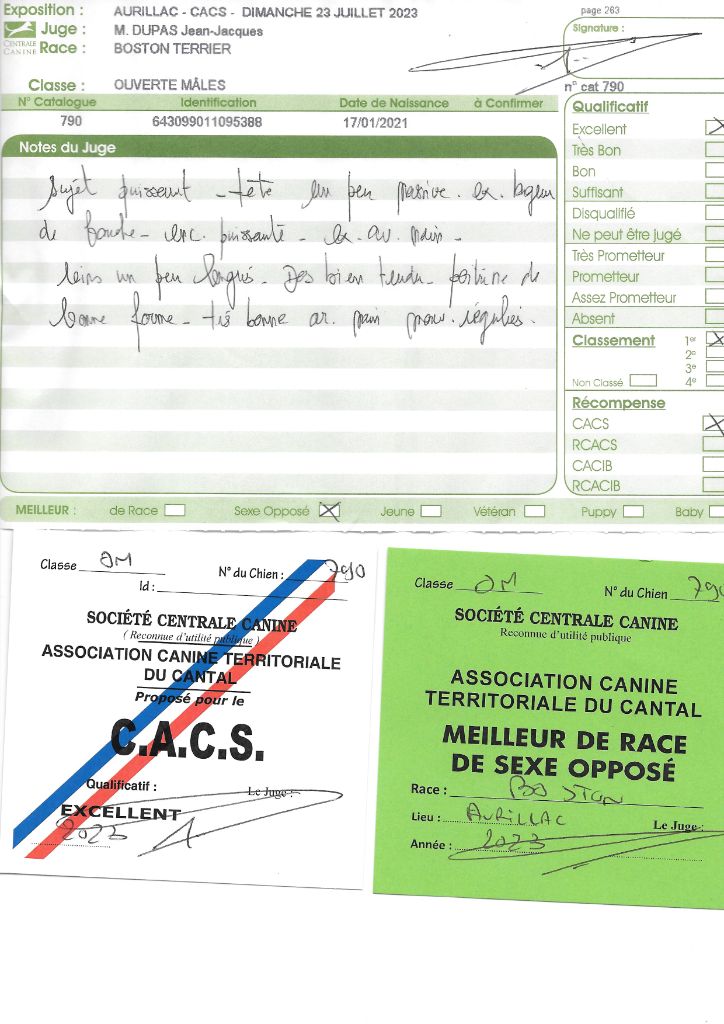 Exposition : AURILLAC - CACS - DIMANCHE 23 JUILLET 2023
page 263
Juge : M. DUPAS Jean-Jacques
Signature :
CENTRALE CANINE
Race : BOSTON TERRIER
Classe : OUVERTE MÂLES
n° cat 790
N° Catalogue Identification Date de Naissance à Confirmer
790 643099011095388 17/01/2021
Notes du Juge
Sujet puissant - tête un peu massive. ex. largeur
de - puissante - ex. av. main -
un peu - Dos bien tendu - poitrine de
bonne forme - très bonne ar. main
Qualificatif
Excellent X
Très Bon
Bon
Suffisant
Disqualifié
Ne peut être jugé
Très Prometteur
Prometteur
Assez Prometteur
Absent
Classement 1er X
2e
3e
Non Classé 4e
Récompense
CACS X
RCACS
CACIB
RCACIB
MEILLEUR : de Race Sexe Opposé X Jeune Vétéran Puppy Baby
Classe OM N° du Chien : 790
Id :
SOCIÉTÉ CENTRALE CANINE
( Reconnue d'utilité publique )
ASSOCIATION CANINE TERRITORIALE
DU CANTAL
Proposé pour le
C.A.C.S.
Qualificatif : Le Juge :
EXCELLENT
2023
Classe OM N° du Chien 790
SOCIÉTÉ CENTRALE CANINE
Reconnue d'utilité publique
ASSOCIATION CANINE
TERRITORIALE DU CANTAL
MEILLEUR DE RACE
DE SEXE OPPOSÉ
Race : BOSTON
Lieu : AURILLAC Le Juge :
Année : 2023